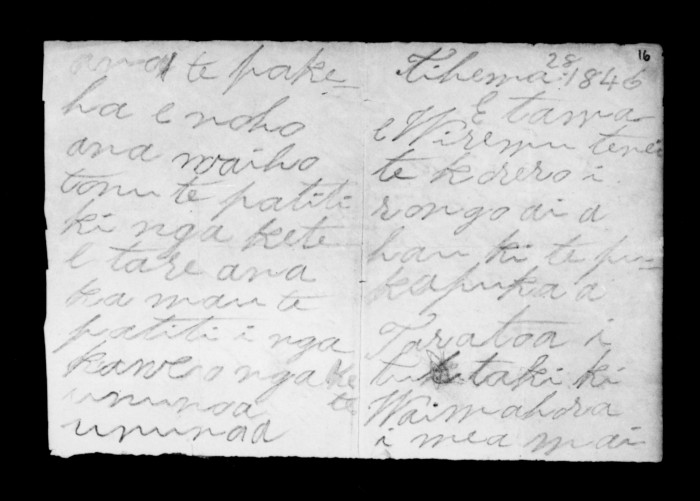 ana te pake-
ha e noho
ana waiho
tonu te patiti
ki nga kete
e tare ana
ka mau te
patiti i nga
kawe o nga ke
te
ununoa
ununoa
16
Tihema 28 1846
E tama
e Wiremu tenei
te korero i
rongo ai a
hau ki te pu-
kapuka a
Taratoa i
tutaki ki
Waimahora
i mea mai